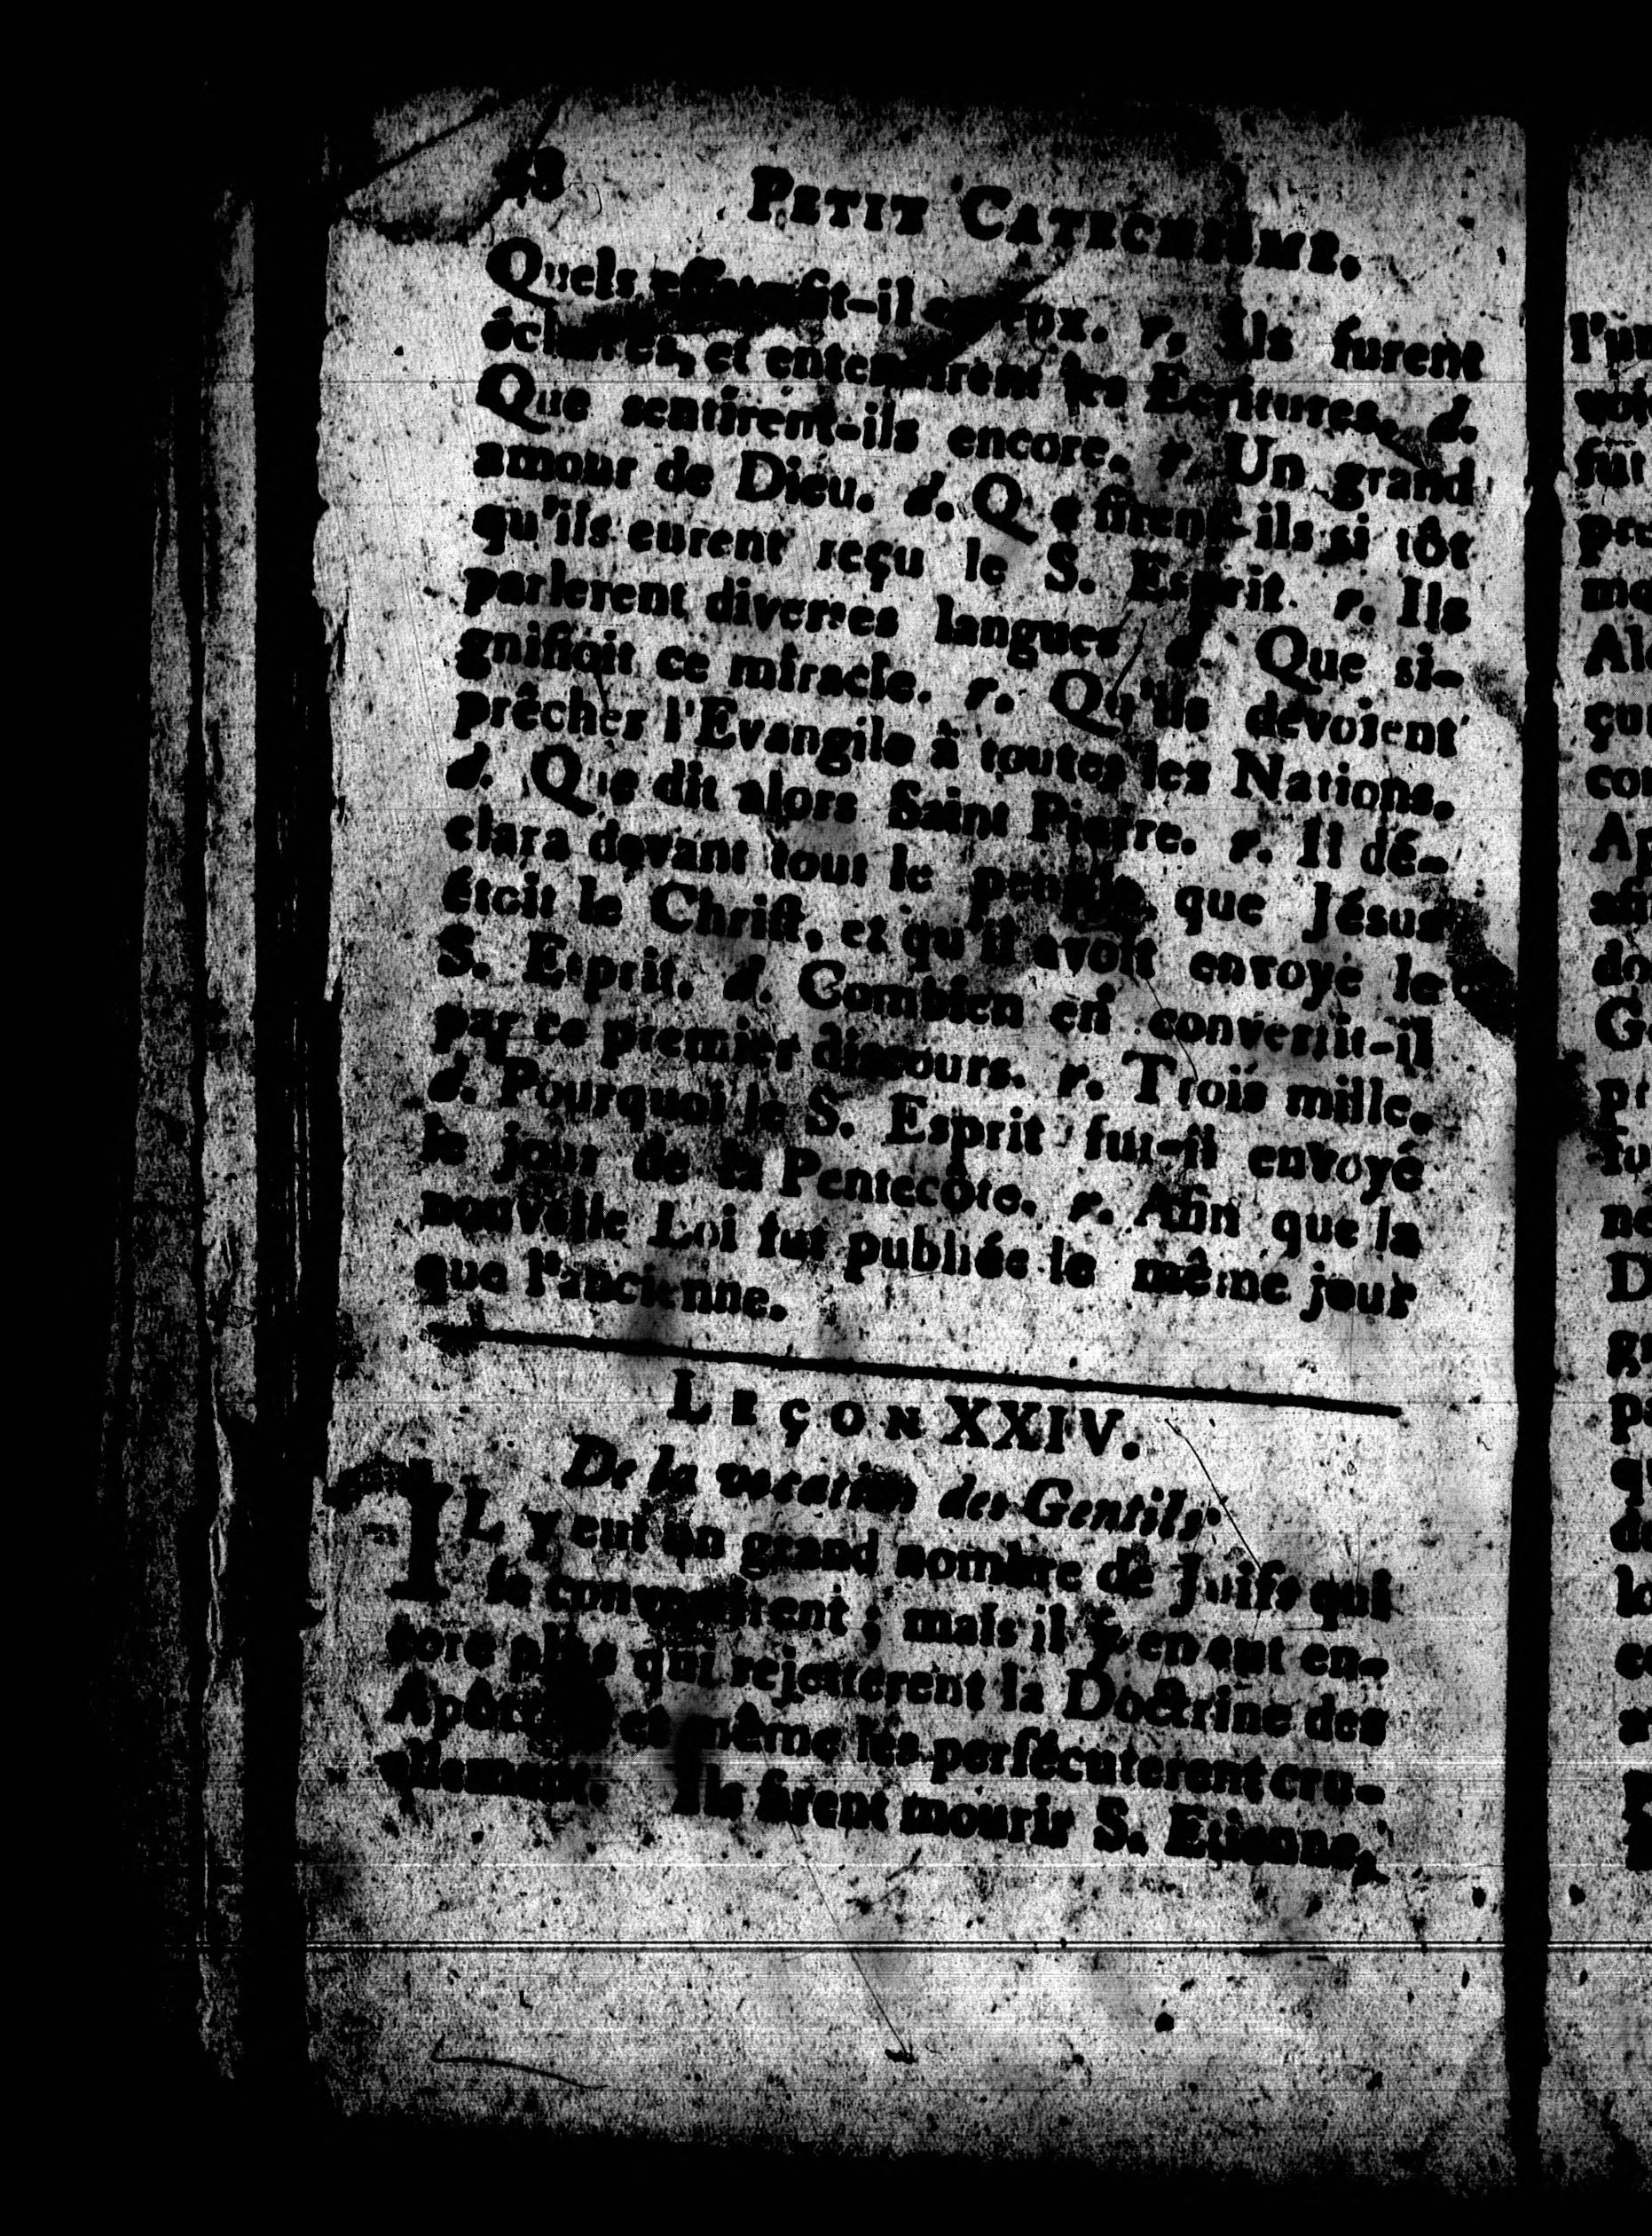 48 PETIT CATECHISME.
Quels effets fit-il en eux. r. Ils furent
éclairés, et entendirent les Ecritures. d.
Que sentirent-ils encore. r. Un grand
amour de Dieu. d. Que firent-ils si tôt
qu'ils eurent reçu le S. Esprit. r. Ils
parlerent diverses langues d. Que si-
gnifioit ce miracle. r. Qu'ils devoient
prêcher l'Evangile à toutes les Nations.
d. Que dit alors Saint Pierre. r. Il dé-
clara devant tout le peuple, que Jésus
étoit le Christ, et qu'il avoit envoyé le
S. Esprit. d. Combien en convertit-il
par ce premier discours. r. Trois mille.
d. Pourquoi le S. Esprit fut-il envoyé
le jour de la Pentecôte. r. Afin que la
nouvelle Loi fut publiée le même jour
que l'ancienne.
LEÇON XXIV.
De la vocation des Gentils.
IL y eut un grand nombre de Juifs qui
se convertirent ; mais il y en eut en-
core plus qui rejetterent la Doctrine des
Apôtres et même les persécuterent cru-
ellement. Ils firent mourir S. Etienne,
l'
fut
Al
çu
Ap
G
D